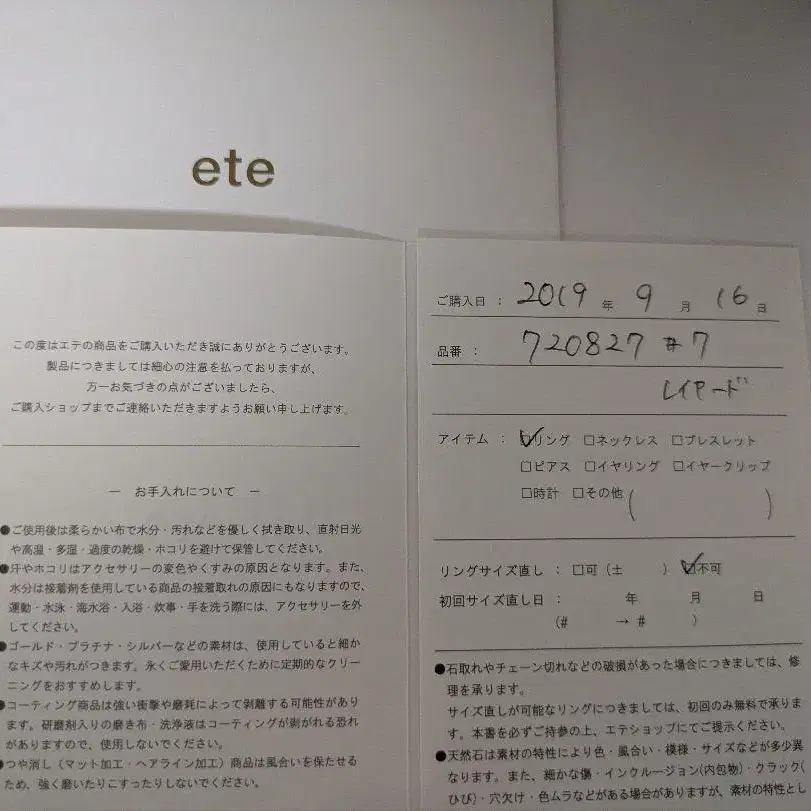 ete
この度はエテの商品をご購入いただき誠にありがとうございます。
製品につきましては細心の注意を払っておりますが、
万一お気づきの点がございましたら、
ご購入ショップまでご連絡いただきますようお願い申し上げます。
― お手入れについて ―
●ご使用後は柔らかい布で水分・汚れなどを優しく拭き取り、直射日光
や高温・多湿・過度の乾燥・ホコリを避けて保管してください。
●汗やホコリはアクセサリーの変色やくすみの原因となります。また、
水分は接着剤を使用している商品の接着取れの原因にもなりますので、
運動・水泳・海水浴・入浴・炊事・手を洗う際には、アクセサリーを外
してください。
●ゴールド・プラチナ・シルバーなどの素材は、使用していると細か
なキズや汚れがつきます。永くご愛用いただくために定期的なクリー
ニングをおすすめします。
●コーティング商品は強い衝撃や磨耗によって剥離する可能性があり
ます。研磨剤入りの磨き布・洗浄液はコーティングが剥がれる恐れ
がありますので、使用しないでください。
●つや消し(マット加工・ヘアライン加工)商品は風合いを保たせる
ため、強く磨いたりこすったりしないでください。
ご購入日 : 2019 年 9 月 16 日
品番 : 720827 #7
レイヤード
アイテム : ☑リング □ネックレス □ブレスレット
□ピアス □イヤリング □イヤークリップ
□時計 □その他 ( )
リングサイズ直し : □可 (± ) ☑不可
初回サイズ直し日 : 年 月 日
(# → # )
●石取れやチェーン切れなどの破損があった場合につきましては、修
理を承ります。
サイズ直しが可能なリングにつきましては、初回のみ無料で承りま
す。本書を必ずご持参の上、エテショップにてご提示ください。
●天然石は素材の特性により色・風合い・模様・サイズなどが多少異
なります。また、細かな傷・インクルージョン(内包物)・クラック(
ひび)・穴欠け・色ムラなどがある場合がありますが、素材の特性とし